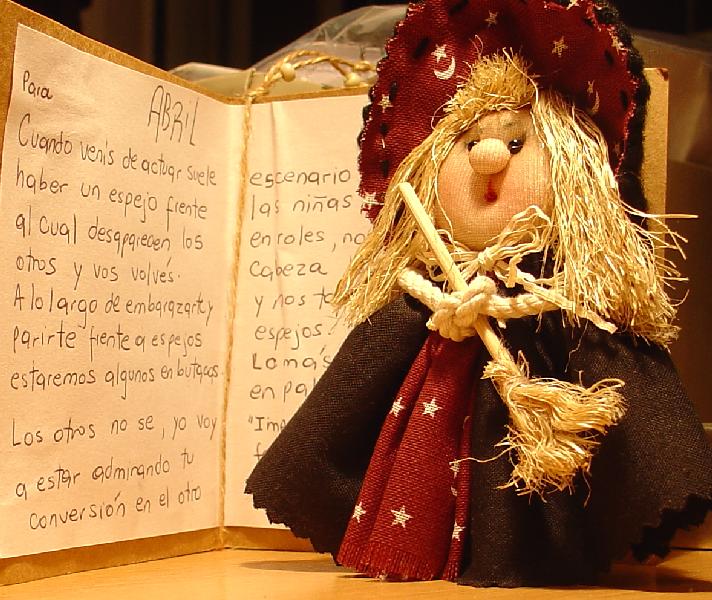 Para
ABRIL
Cuando venis de actuar suele
haber un espejo frente
al cual desaparecen los
otros y vos volvés.
A lo largo de embarazarte y
parirte frente a espejos
estaremos algunos en butacas.
Los otros no se, yo voy
a estar admirando tu
conversión en el otro
escenario
las niñas
en roles, no
cabeza
y nos
espejos
Lo más
en